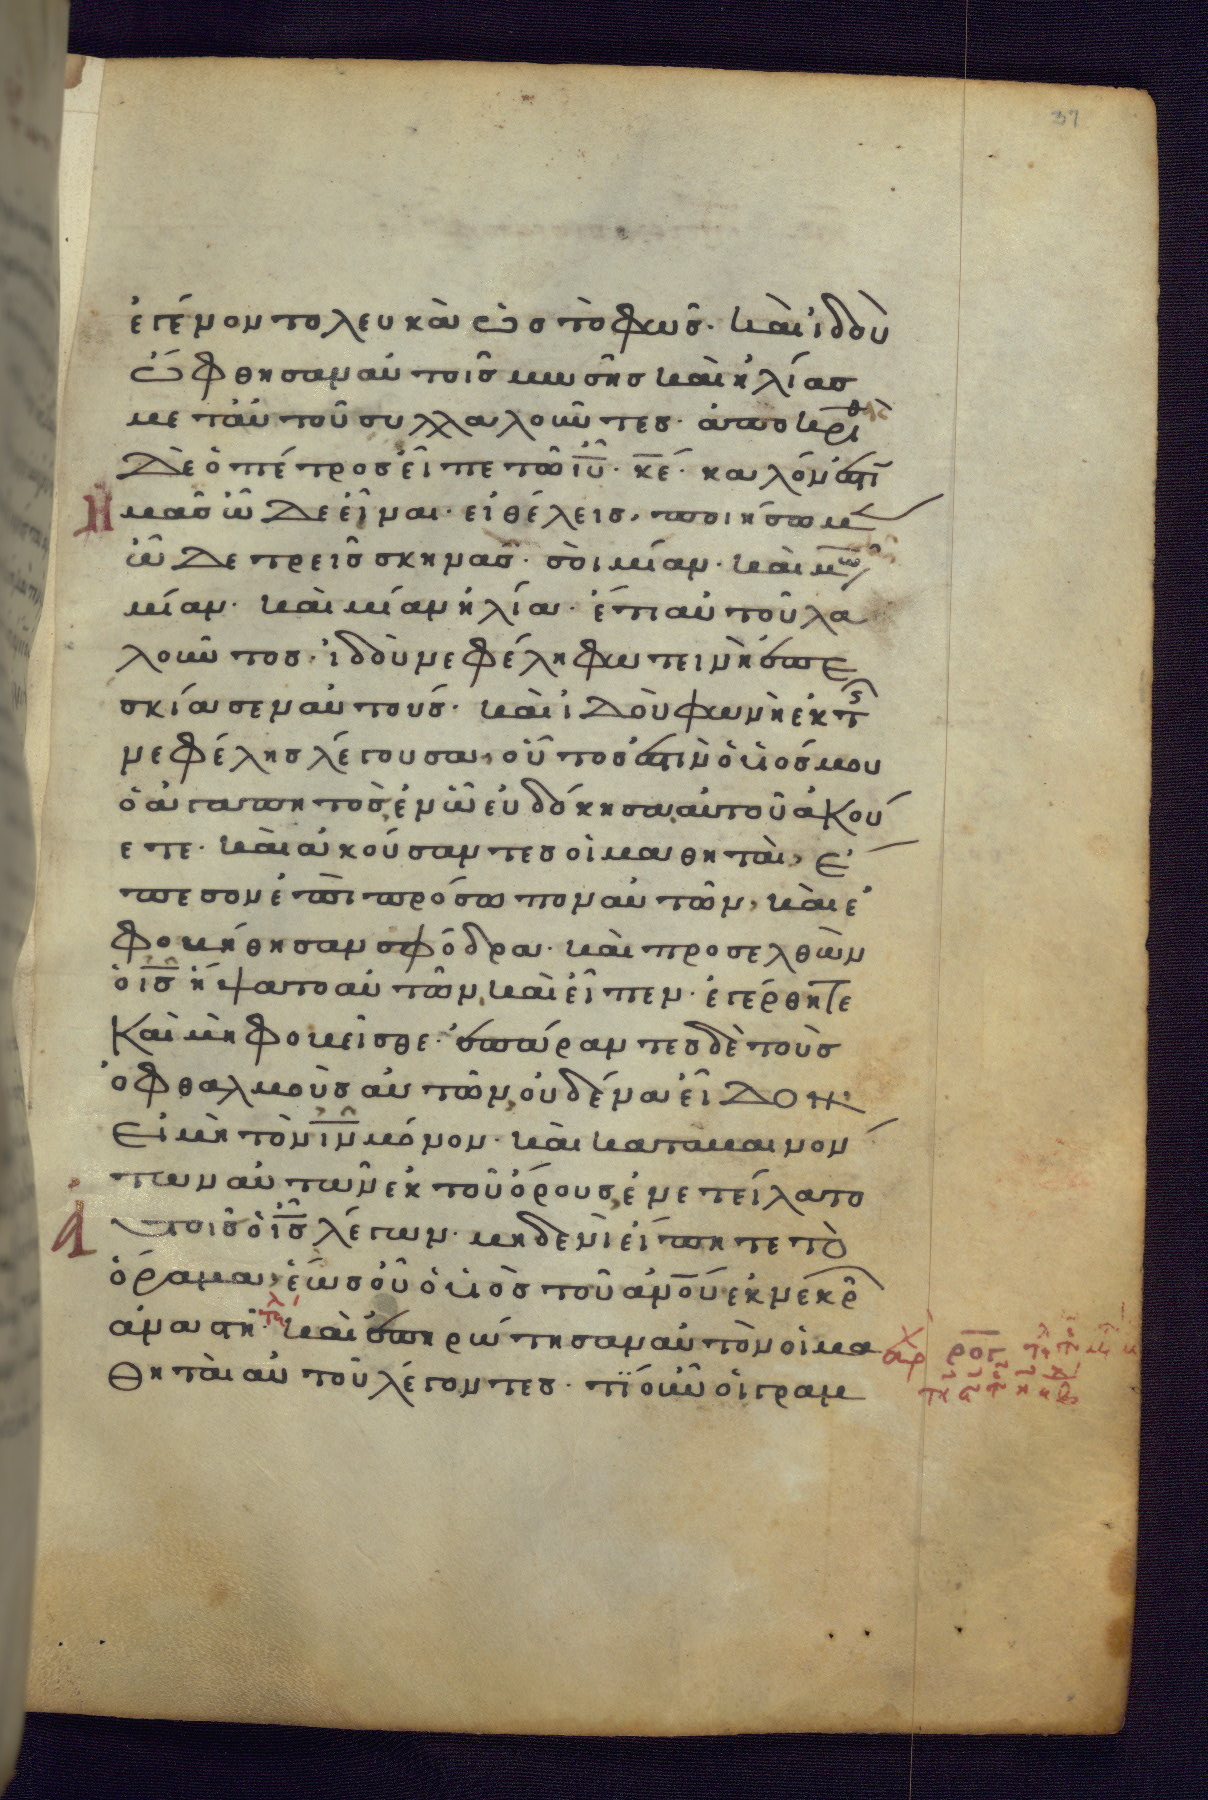 37
ἐγένοντο λευκὰ ὡς τὸ φῶς· καὶ ἰδοὺ
ὤφθησαν αὐτοῖς μωσῆς καὶ ἠλίας
μετ αὐτοῦ συλλαλοῦντες· ἀποκριθεὶς
δὲ ὁ πέτρος εἶπε τῶ ἰῦ· κέ· καλόν ἐστιν
ἡμᾶς ὧδε εἶναι· εἰ θέλεις, ποιήσωμεν
ὧδε τρεῖς σκηνάς· σοὶ μίαν· καὶ μωσῆ
μίαν· καὶ μίαν ἠλία· ἔτι αὐτοῦ λα
λοῦντος· ἰδοὺ νεφέλη φωτεινὴ ἐπε
σκίασεν αὐτούς· καὶ ἰδοὺ φωνὴ ἐκ τῆς
νεφέλης λέγουσα, οὗτός ἐστιν ὁ υἱός μου
ὁ ἀγαπητὸς, ἐν ὧ εὐδόκησα, αὐτοῦ ἀκού
ετε· καὶ ἀκούσαντες οἱ μαθηταὶ, ἔ
πεσον ἐπὶ πρόσωπον αὐτῶν, καὶ ἐ
φοβήθησαν σφόδρα· καὶ προσελθὼν
ὁ ἰς ἥψατο αὐτῶν, καὶ εἶπεν· ἐγέρθητε
καὶ μὴ φοβεῖσθε· ἐπάραντες δὲ τοὺς
ὀφθαλμοὺς αὐτῶν, οὐδένα εἶδον
εἰ μὴ τὸν ἰν μόνον· καὶ καταβαινόν
των αὐτῶν ἐκ τοῦ ὄρους, ἐνετείλατο
αὐτοῖς ὁ ἰς λέγων· μηδενὶ εἴπητε τὸ
ὅραμα, ἕως οὗ ὁ υἱὸς τοῦ ἀνου ἐκ νεκρῶν
ἀναστῆ· καὶ ἐπηρώτησαν αὐτὸν οἱ μα
θηταὶ αὐτοῦ λέγοντες· τί οὖν οἱ γραμ